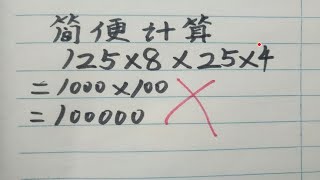 简便计算
125×8×25×4
=1000×100
=100000